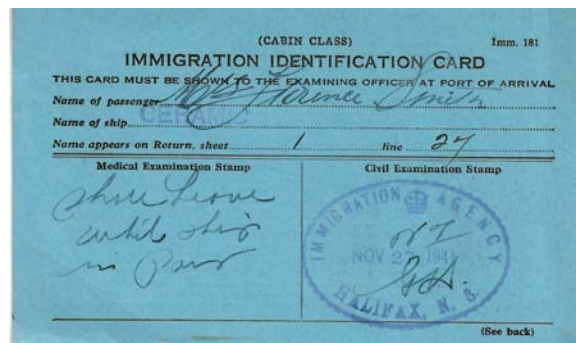 (CABIN CLASS)
Imm. 181
IMMIGRATION IDENTIFICATION CARD
THIS CARD MUST BE SHOWN TO THE EXAMINING OFFICER AT PORT OF ARRIVAL
Name of passenger Mrs Florence Smith
Name of ship CERAMIC
Name appears on Return, sheet 1 line 27
Medical Examination Stamp
Civil Examination Stamp
Shore Leave
until ship
in Port
IMMIGRATION AGENCY
NOV 27 194
HALIFAX, N. S.
(See back)